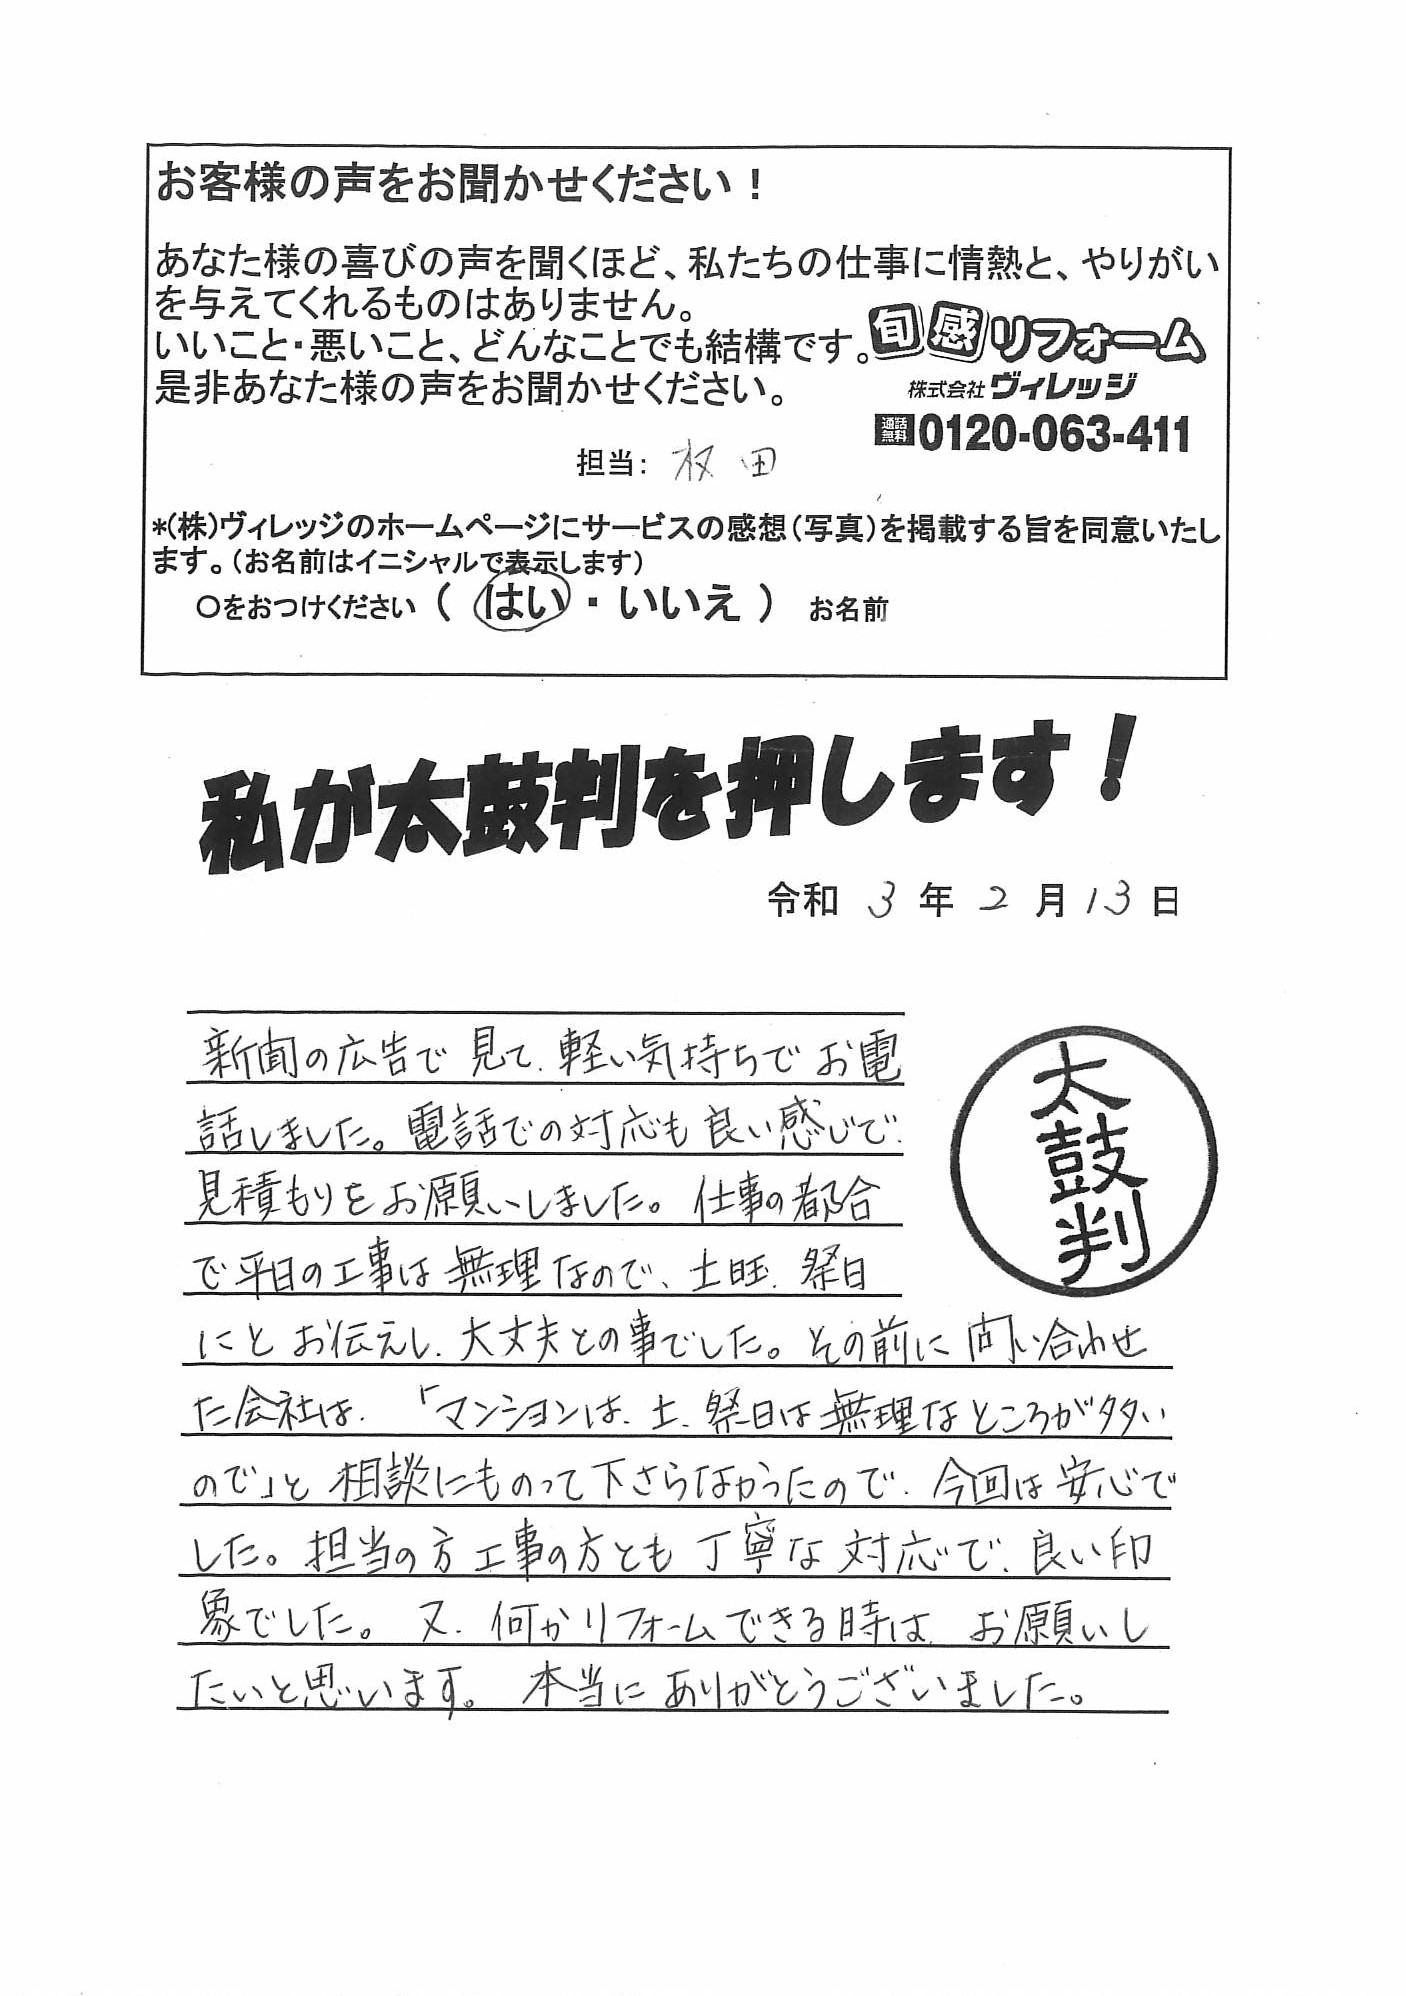 お客様の声をお聞かせください！
あなた様の喜びの声を聞くほど、私たちの仕事に情熱と、やりがい
を与えてくれるものはありません。
いいこと・悪いこと、どんなことでも結構です。
是非あなた様の声をお聞かせください。
旬感リフォーム
株式会社ヴィレッジ
通話無料0120-063-411
担当: 権田
*(株)ヴィレッジのホームページにサービスの感想(写真)を掲載する旨を同意いたし
ます。(お名前はイニシャルで表示します)
○をおつけください ( はい ・ いいえ ) お名前
私が太鼓判を押します！
令和 3 年 2 月 13 日
新聞の広告で見て、軽い気持ちでお電
話しました。電話での対応も良い感じで、
見積もりをお願いしました。仕事の都合
で平日の工事は無理なので、土曜、祭日
にとお伝えし、大丈夫との事でした。その前に問い合わせ
た会社は、「マンションは、土、祭日は無理なところが多い
ので」と相談にものって下さらなかったので、今回は安心で
した。担当の方工事の方とも丁寧な対応で、良い印
象でした。又、何かリフォームできる時は、お願いし
たいと思います。本当にありがとうございました。
太鼓判